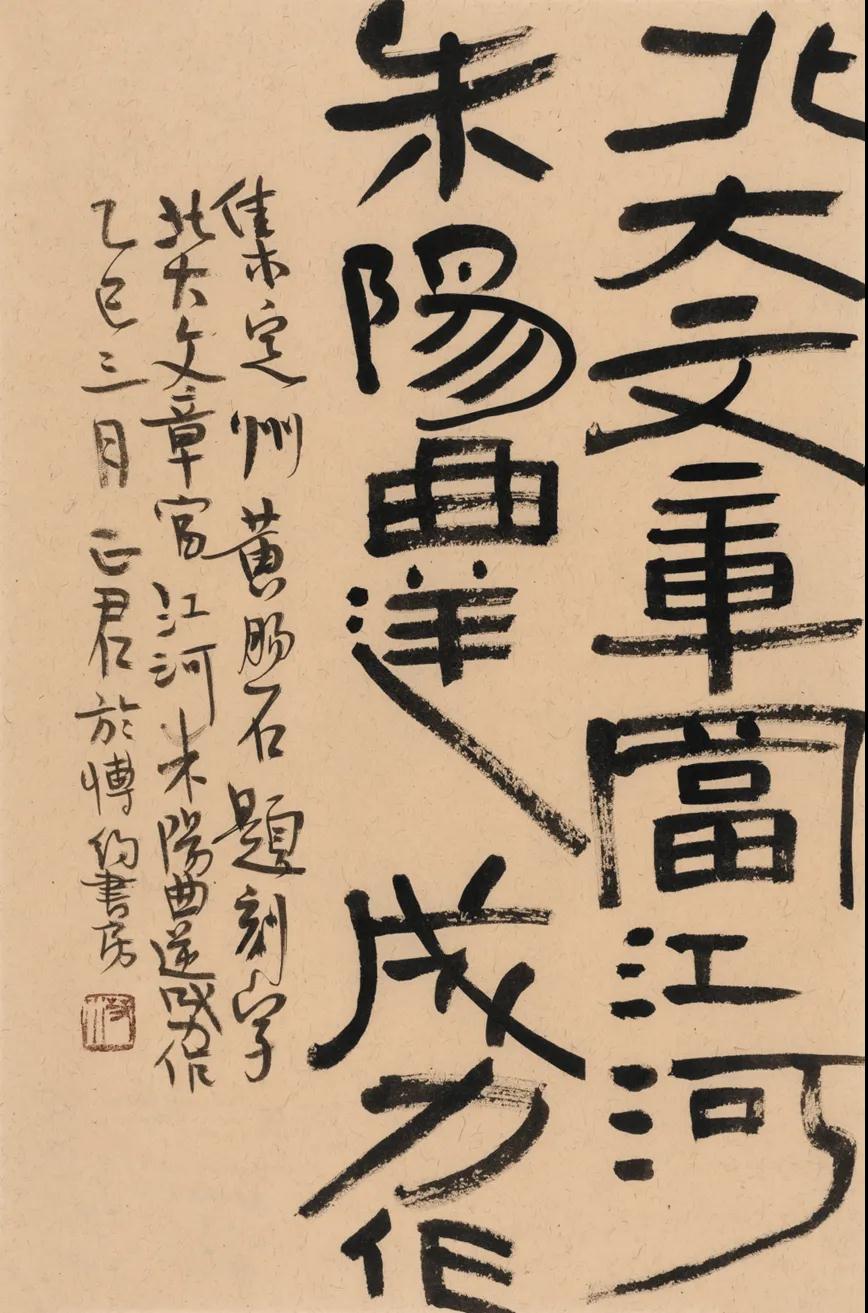 北大文章富江河
朱陽曲逆成力作
集定州黄肠石題刻字
北大文章富江河朱陽曲逆成力作
乙巳三月正君於博约書房